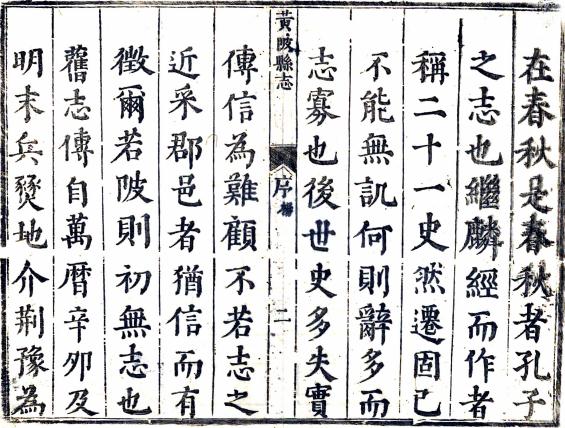 在春秋是春秋者孔子
之志也繼麟經而作者
稱二十一史然遷固已
不能無訊何則辭多而
志寡也後世史多失實
黃陂縣志
序
二
傳信為難顧不若志之
近采郡邑者猶信而有
徵爾若陂則初無志也
舊志傳自萬曆辛夘及
明末兵燹地介荆豫為